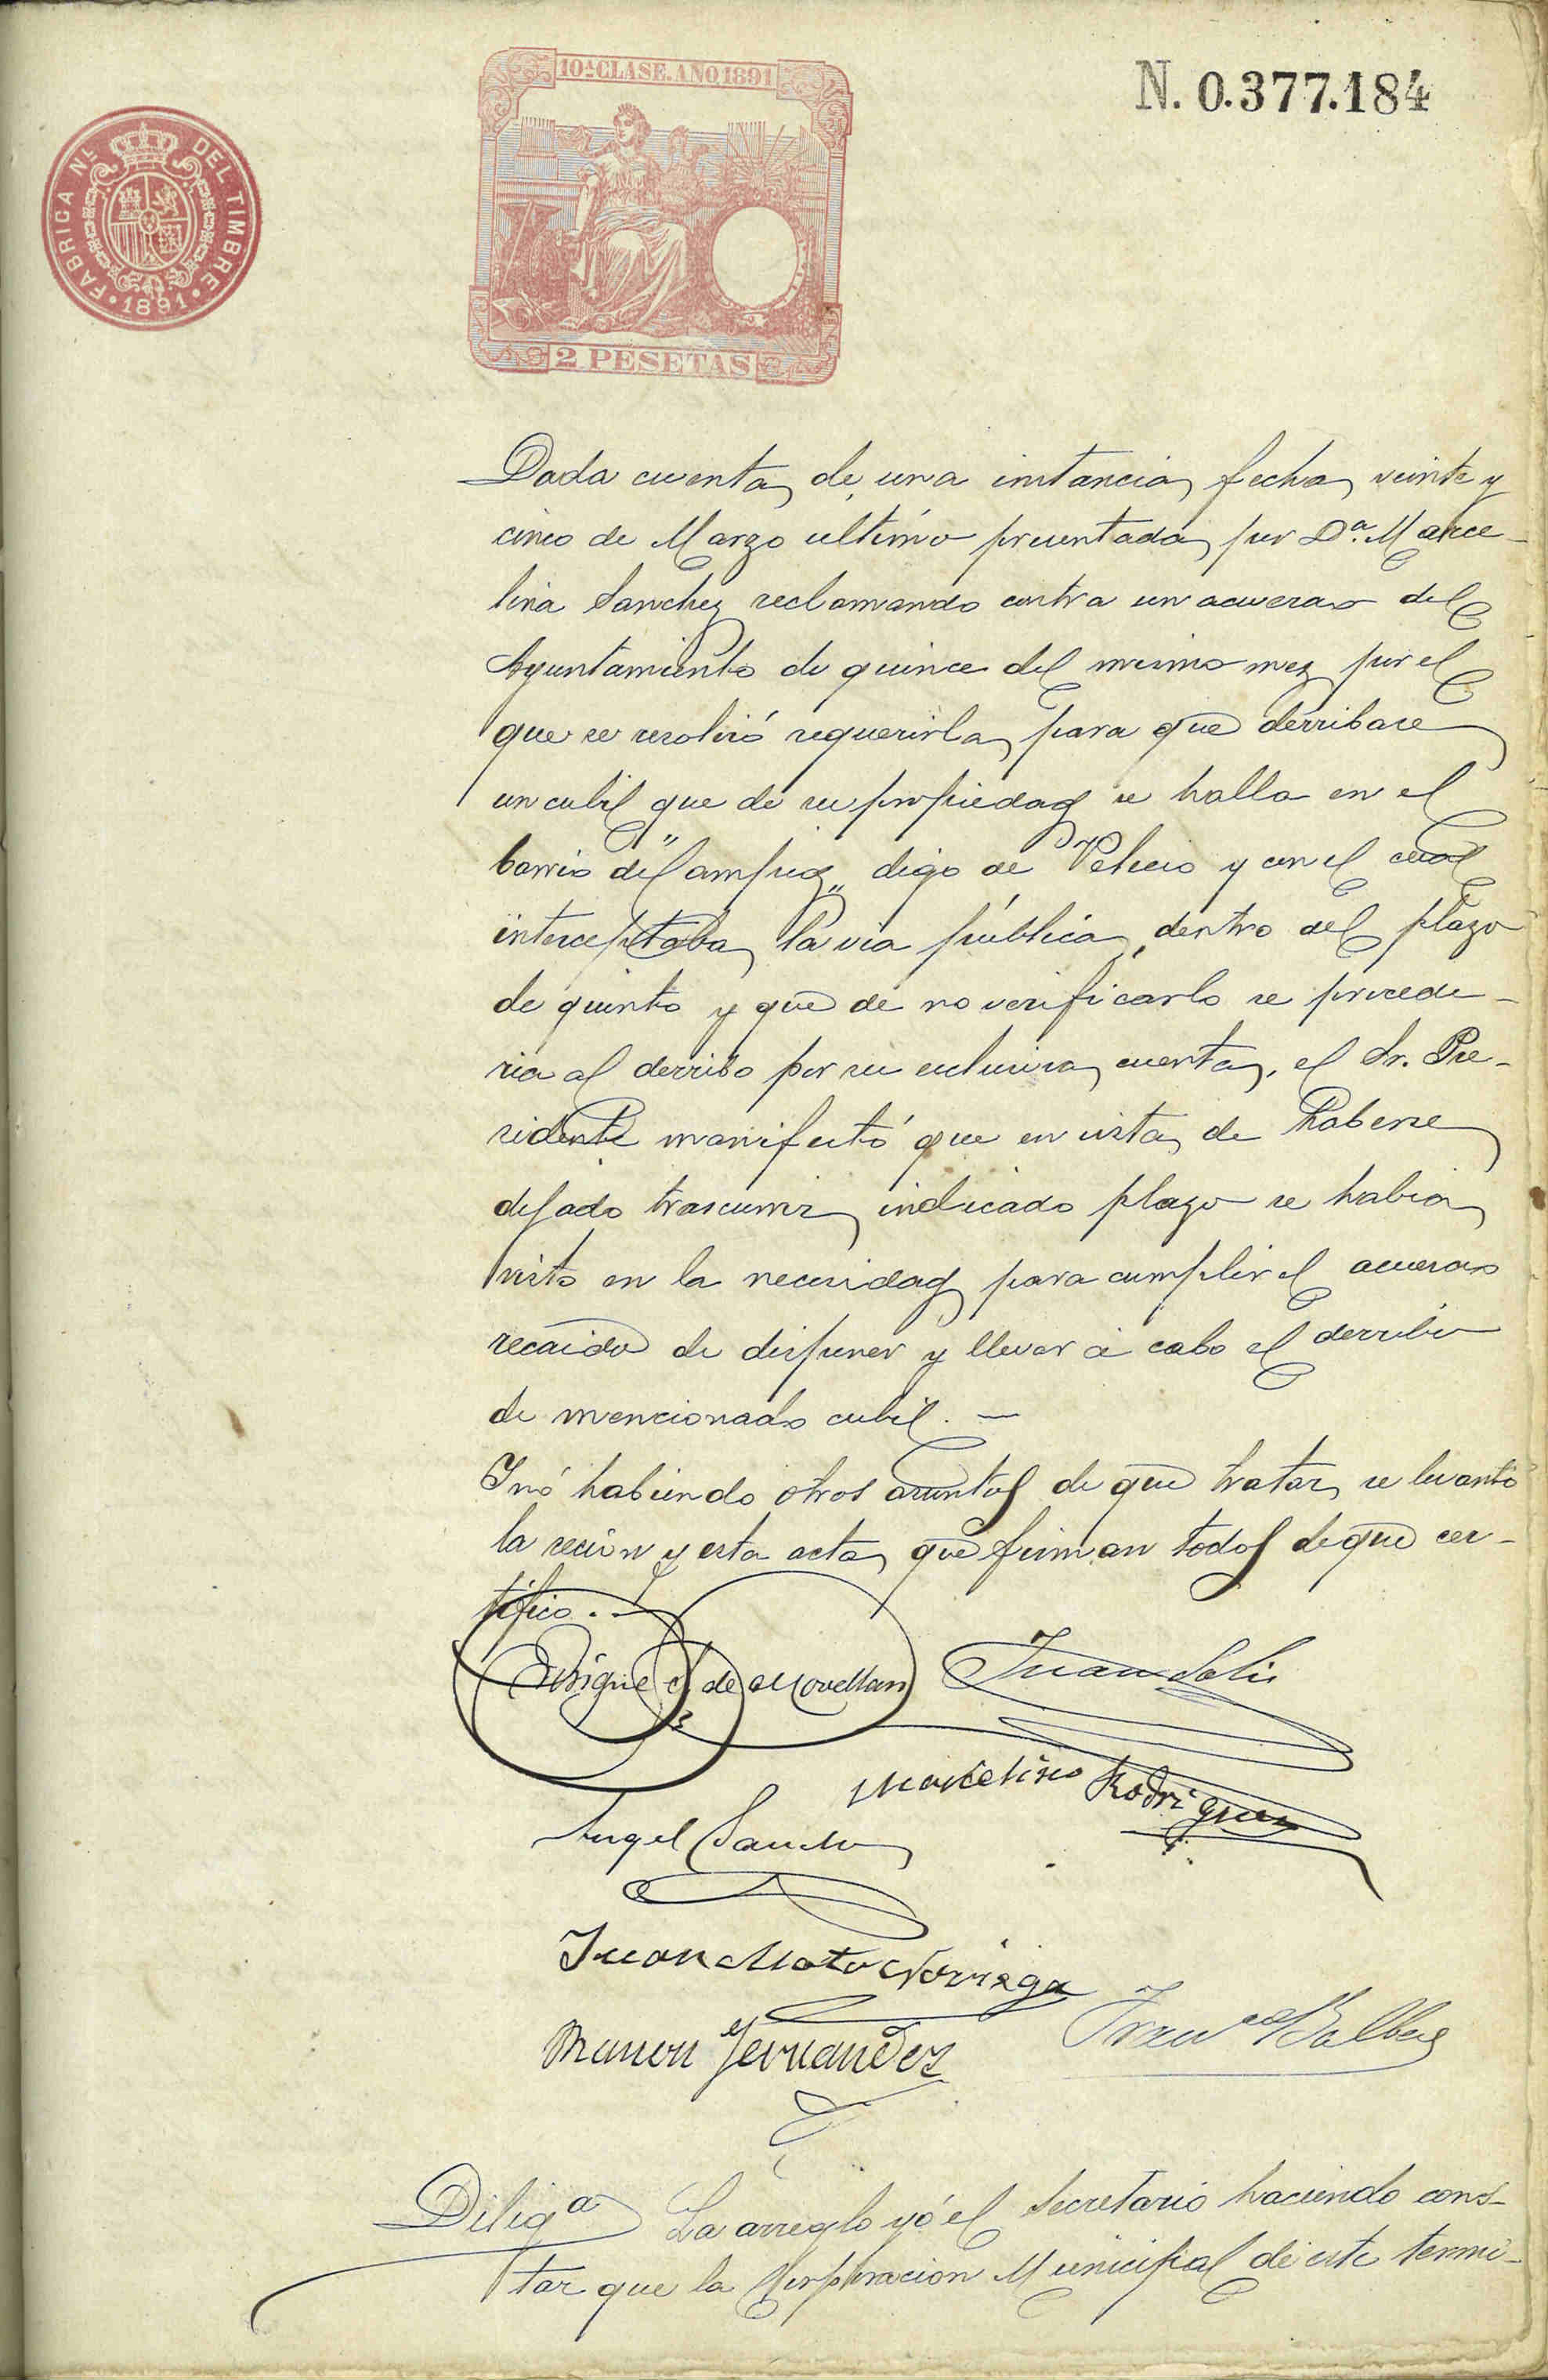 10ª CLASE. AÑO 1891
N. 0.377.184
FABRICA Nˡ. DEL TIMBRE · 1891 ·
2 PESETAS
Dada cuenta de una instancia fecha veinte y
cinco de Marzo ultimo presentada por Dª. Marce-
lina Sanchez reclamando contra un acuerdo del
Ayuntamiento de quince del mismo mes por el
que se resolvió requerirla para que derribase
un cubil que de su propiedad se halla en el
barrio de digo de y con el cual
interceptaba la via pública, dentro del plazo
de quinto y que de no verificarlo se procede-
ria al derribo por su esclusiva cuenta, el Sr. Pre-
sidente manifestó que en vista de haberse
dejado trascurrir indicado plazo se habia
visto en la necesidad para cumplir el acuerdo
recaido de disponer y llevar á cabo el derribo
de mencionado cubil. —
Y nó habiendo otros asuntos de que tratar, se levantó
la sesion y esta acta que firman todos de que cer-
tifico. —
Enrique G. de Movellan Juan Solis
Marcelino Rodriguez
Angel Sanchez
Juan Mato Noriega
Manuel Fernandez Franᶜᵒ Balbas
Diligª La arreglo yó el Secretario haciendo cons-
tar que la Corporacion Municipal de este termi-